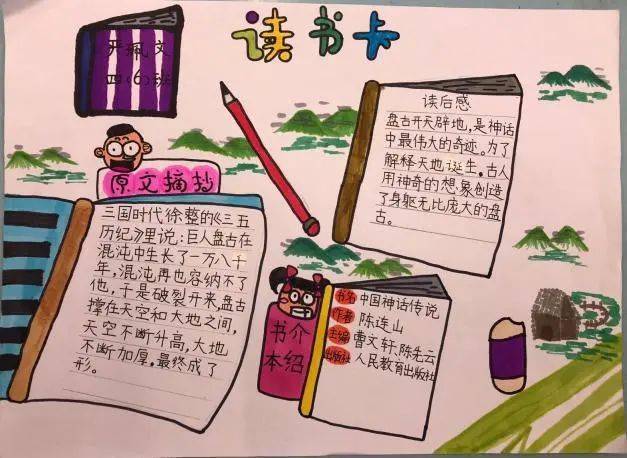 读书卡
严珮文
四(6)班
读后感
盘古开天辟地,是神话
中最伟大的奇迹。为了
解释天地诞生。古人
用神奇的想,象创造
了身躯无比庞大的盘
古。
原文摘抄
三国时代徐整的《三五
历纪》里说:巨人盘古在
混沌中生长了一万八千
年,混沌再也容纳不了
他,于是破裂开来,盘古
撑在天空和大地之间,
天空不断升高,大地
不断加厚,最终成了
形。
书本介绍
书名 中国神话传说
作者 陈连山
主编 曹文轩、陈先云
出版社 人民教育出版社